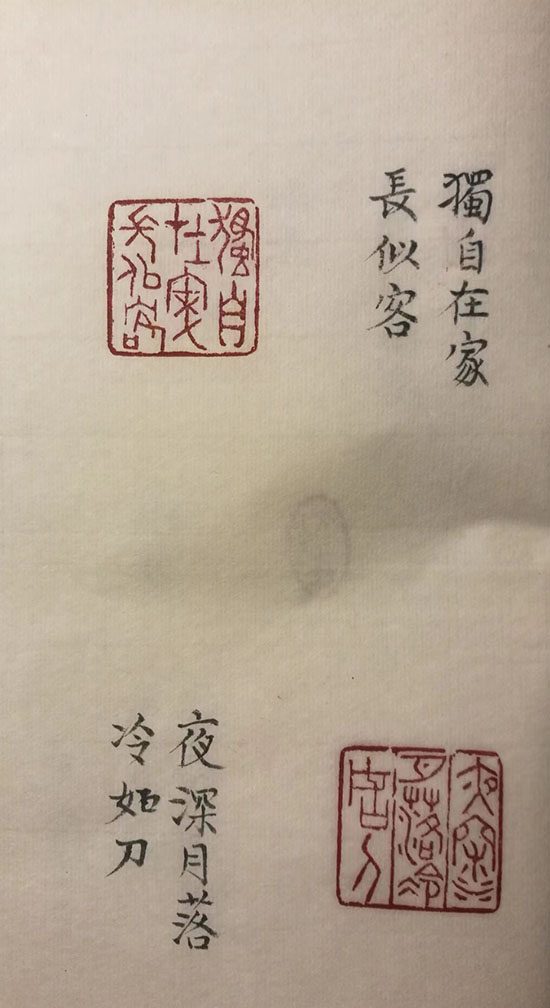 獨自在家
長似客
獨自
在家
長似客
夜深
月落冷
如刀
夜深月落
冷如刀